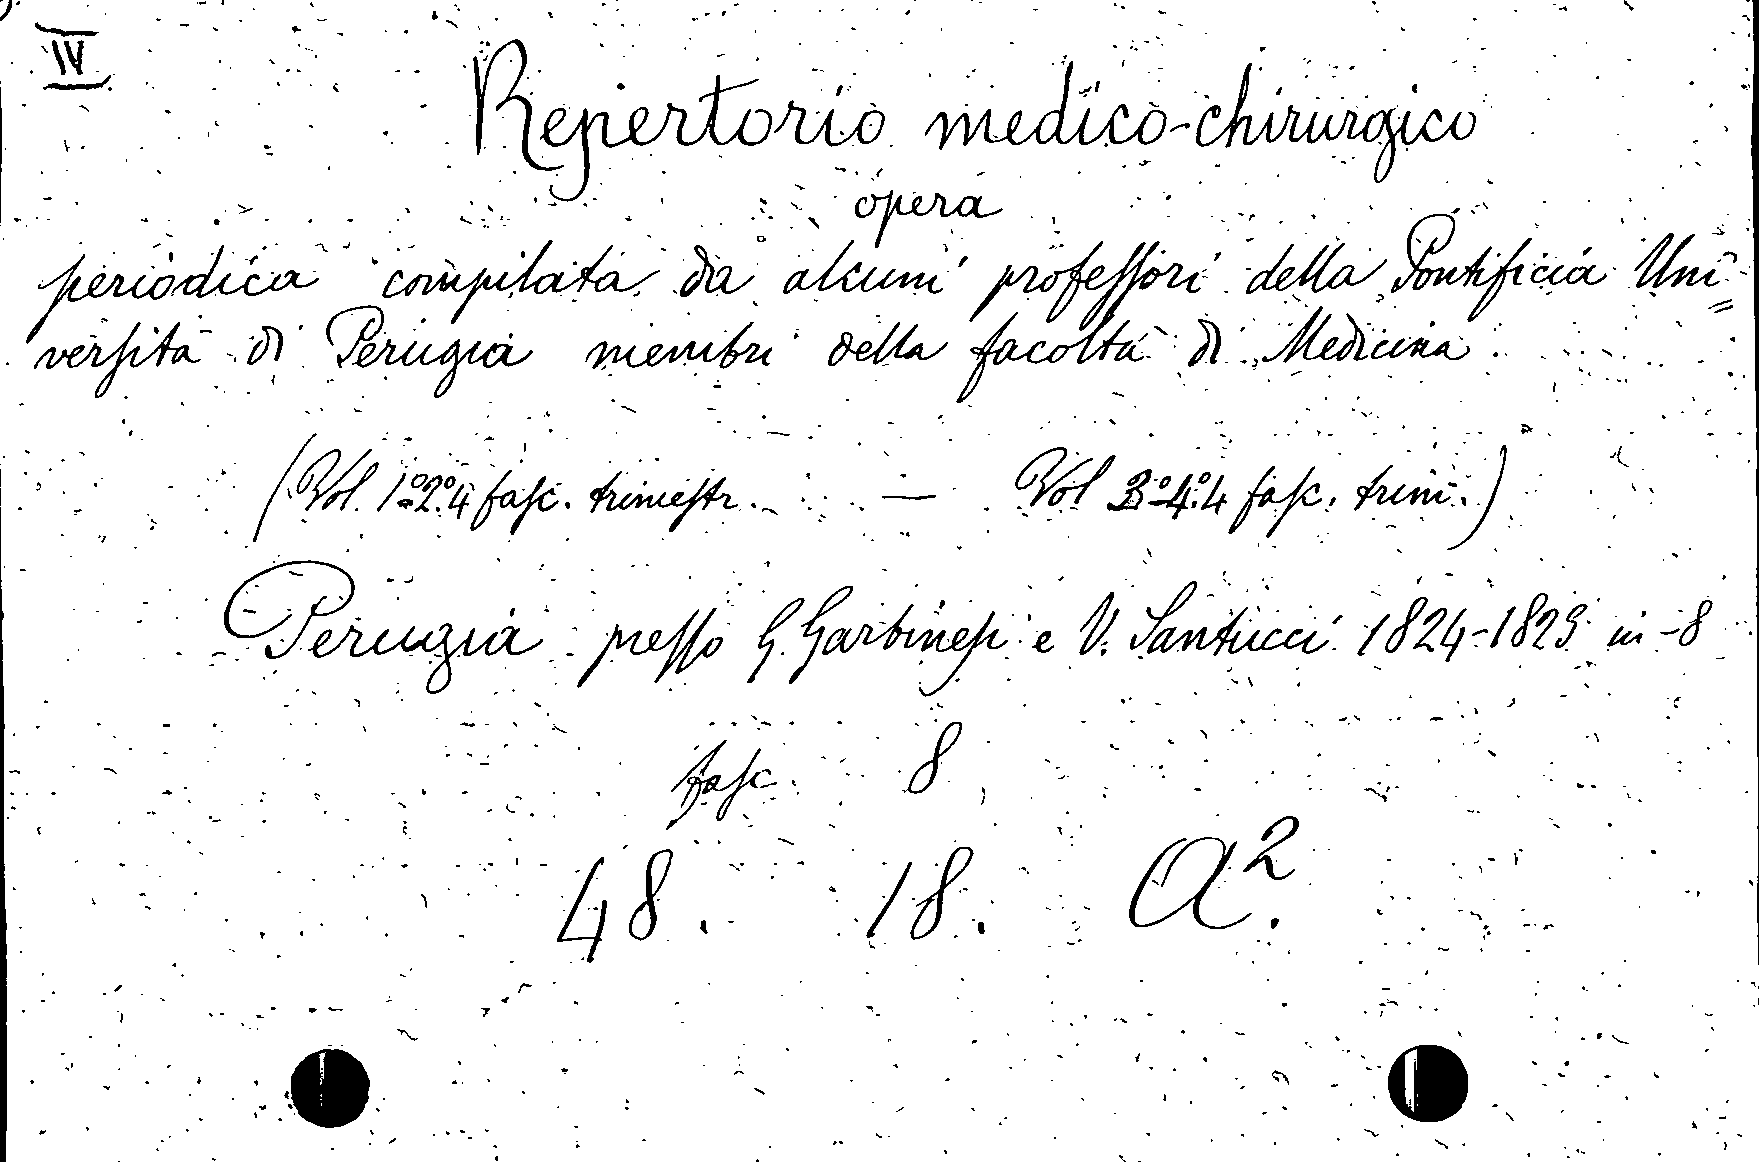 IV
Repertorio medico-chirurgico
opera
periodica compilata da alcuni professori della Pontificia Uni=
versità di Perugia membri della facoltà di Medicina
(Vol. 1º 2º 4 fasc. trimestr. — Vol 3º 4º 4 fasc. trim.)
Perugia presso G. Garbinesi e V. Santucci 1824-1825 in-8
fasc. 8
48. 18. A².